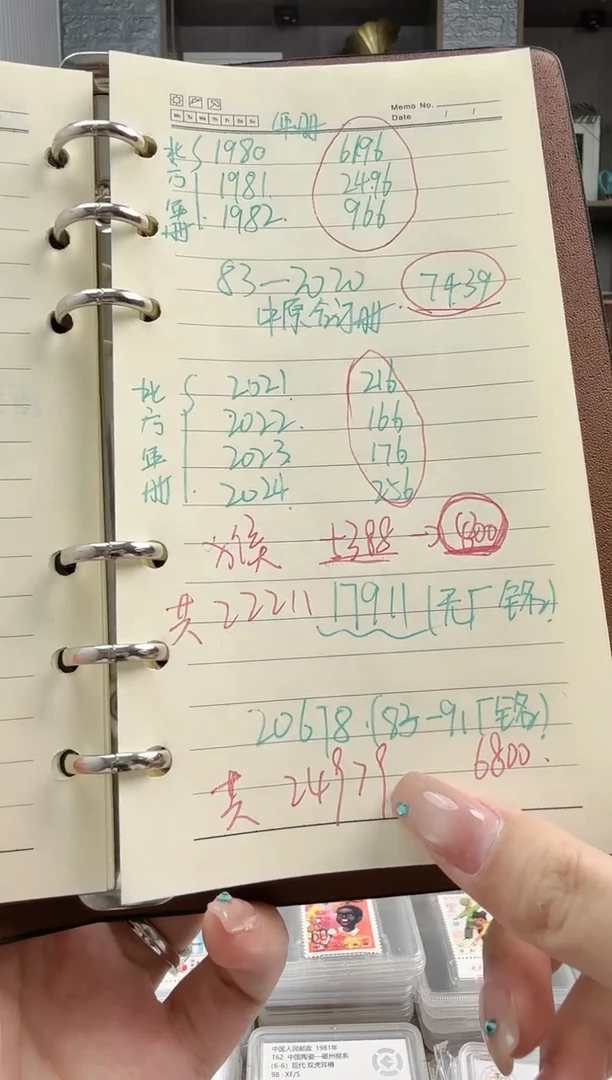 Memo No.
Mo Tu We Th Fr Sa Su
Date / /
年册
北方年册
1980 6196
1981 2496
1982 966
83-2020 7439
中原合订册
北方年册
2021 216
2022 166
2023 176
2024 256
1388 → 4300
共22211 17911(无厂铭)
20678(83-91厂铭)
共 24979 6800
60
中国人民邮政 1981年
T62 中国陶瓷—磁州窑系
(6-6) 现代·双虎耳樽
98 · XF/S